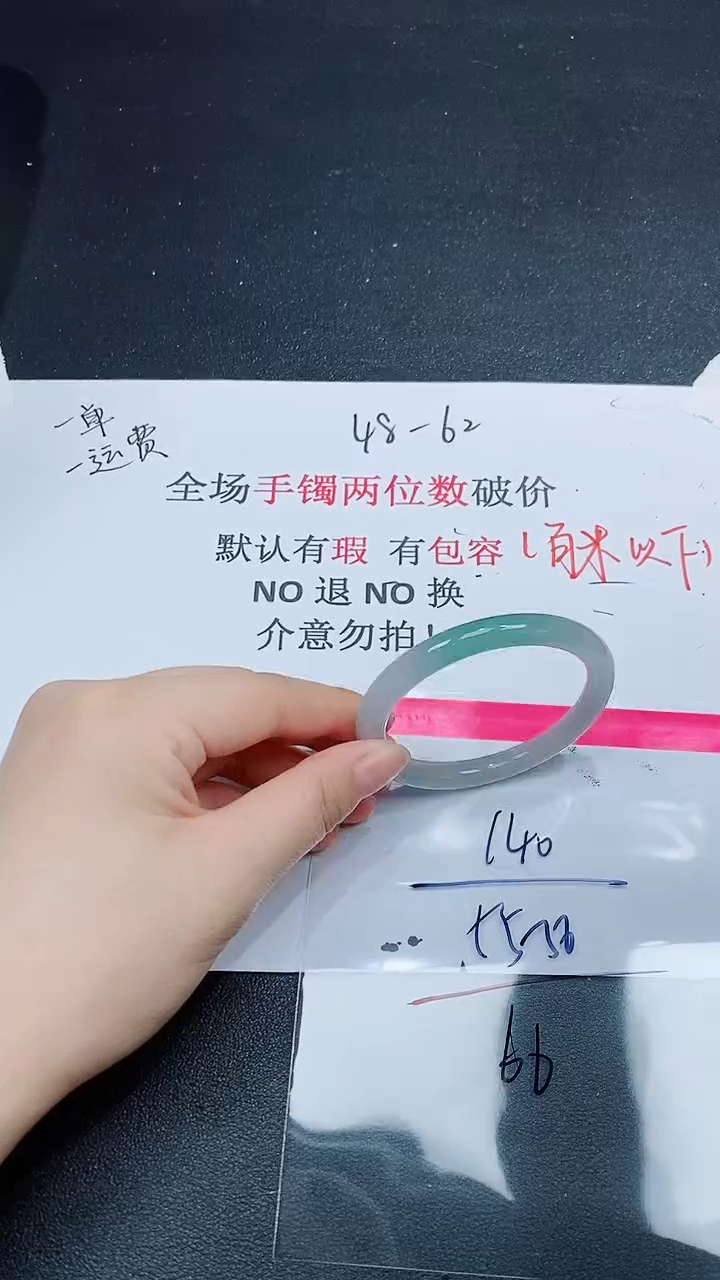 一单
一运费
48-62
全场手镯两位数破价
默认有瑕 有包容(百米以下)
NO 退 NO 换
介意勿拍!
140
66